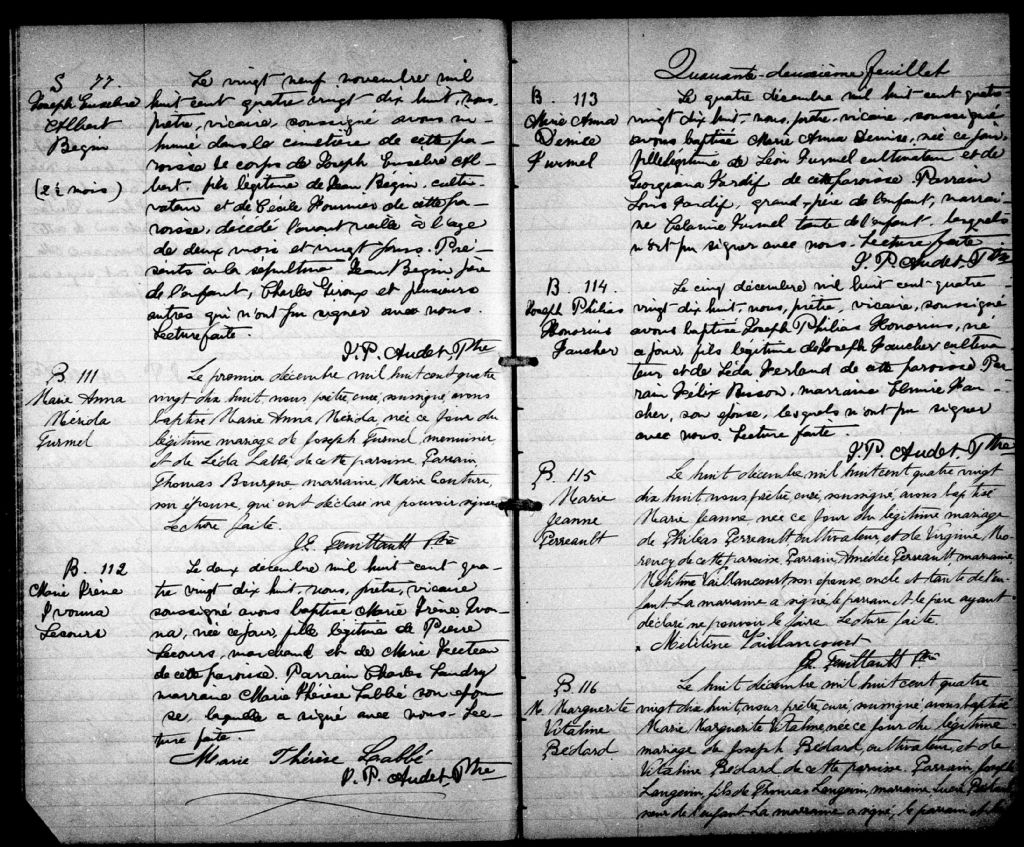 S 77.
Joseph Eusèbe
Albert
Begin
(2½ mois)
Le vingt neuf novembre mil
huit cent quatre vingt dix huit, nous,
prêtre, vicaire, soussigné avons in-
humé dans le cimetière de cette pa-
roisse le corps de Joseph Eusèbe Al-
bert, fils légitime de Jean Begin, culti-
vateur et de Cécile Fournier de cette pa-
roisse, décédé l'avant veille à l'age
de deux mois et vingt jours. Pré-
sents à la sépulture Jean Begin père
de l'enfant, Charles Giroux et plusieurs
autres qui n'ont pu signer avec nous.
Lecture faite.
J. P. Audet, Ptre
B. 111
Marie Anna
Mérida
Turmel
Le premier décembre mil huit cent quatre
vingt dix huit nous prêtre, curé, soussigné, avons
baptisé Marie Anna Mérida, née ce jour du
légitime mariage de Joseph Turmel, menuisier
et de Léda Labbé, de cette paroisse. Parrain
Thomas Bourque marraine, Marie Couture,
son épouse, qui ont déclaré ne pouvoir signer
Lecture faite.
J. E. Feuiltault Ptre
B. 112
Marie Irène
Ivonna
Lecours
Le deux décembre mil huit cent qua-
tre vingt dix huit, nous, prêtre, vicaire
soussigné avons baptisé Marie Irène Ivon-
na, née ce jour, fille légitime de Pierre
Lecours, marchand et de Marie
de cette paroisse. Parrain Charles Landry
marraine Marie Thérèse Labbé son epou-
se, laquelle a signé avec nous. Lec-
ture faite.
Marie Thérèse Labbé
J. P. Audet, Ptre
Quarante-deuxième feuillet
B. 113
Marie Anna
Denise
Turmel
Le quatre décembre mil huit cent quatre
vingt dix huit, nous, prêtre, vicaire, soussigné
avons baptisé Marie Anna Denise, née ce jour,
fille légitime de Léon Turmel cultivateur et de
Georgiana Tardif de cette paroisse. Parrain
Louis Tardif, grand-père de l'enfant, marrai-
ne Célanire Turmel tante de l'enfant, lesquels
n'ont pu signer avec nous. Lecture faite.
J. P. Audet, Ptre
B. 114.
Joseph Philias
Honorius
Faucher
Le cinq décembre mil huit cent quatre
vingt dix huit, nous, prêtre, vicaire, soussigné
avons baptisé Joseph Philias Honorius, né
ce jour, fils légitime de Joseph Faucher cultiva-
teur et de Léda Ferland de cette paroisse Par-
rain Félix Bisson, marraine Fau-
cher, son epouse, lesquels n'ont pu signer
avec nous. Lecture faite.
J. P. Audet, Ptre
B. 115
Marie
Jeanne
Perreault
Le huit décembre mil huit cent quatre vingt
dix huit nous prêtre curé, soussigné, avons baptisé
Marie Jeanne née ce jour du légitime mariage
de Philéas Perreault cultivateur, et de Virginie Mo-
rency de cette paroisse. Parrain, Amédée Perreault, marraine,
Méhtine Vaillancourt son épouse, oncle et tante de l'en-
fant. La marraine a signé, le parrain et le père ayant
déclaré ne pouvoir le faire. Lecture faite.
Mélitine Vaillancourt
J. E. Feuiltault Ptre
B. 116
M. Marguerite
Vitaline
Bédard
Le huit décembre mil huit cent quatre
vingt dix huit, nous prêtre curé, soussigné, avons baptisé
Marie Marguerite Vitaline, née ce jour du légitime
mariage de Joseph Bédard, cultivateur, et de
Vitaline Bédard de cette paroisse. Parrain, Joseph
Langevin, fils de Thomas Langevin, marraine, Lucie Bédard
soeur de l'enfant. La marraine a signé, le parrain et le